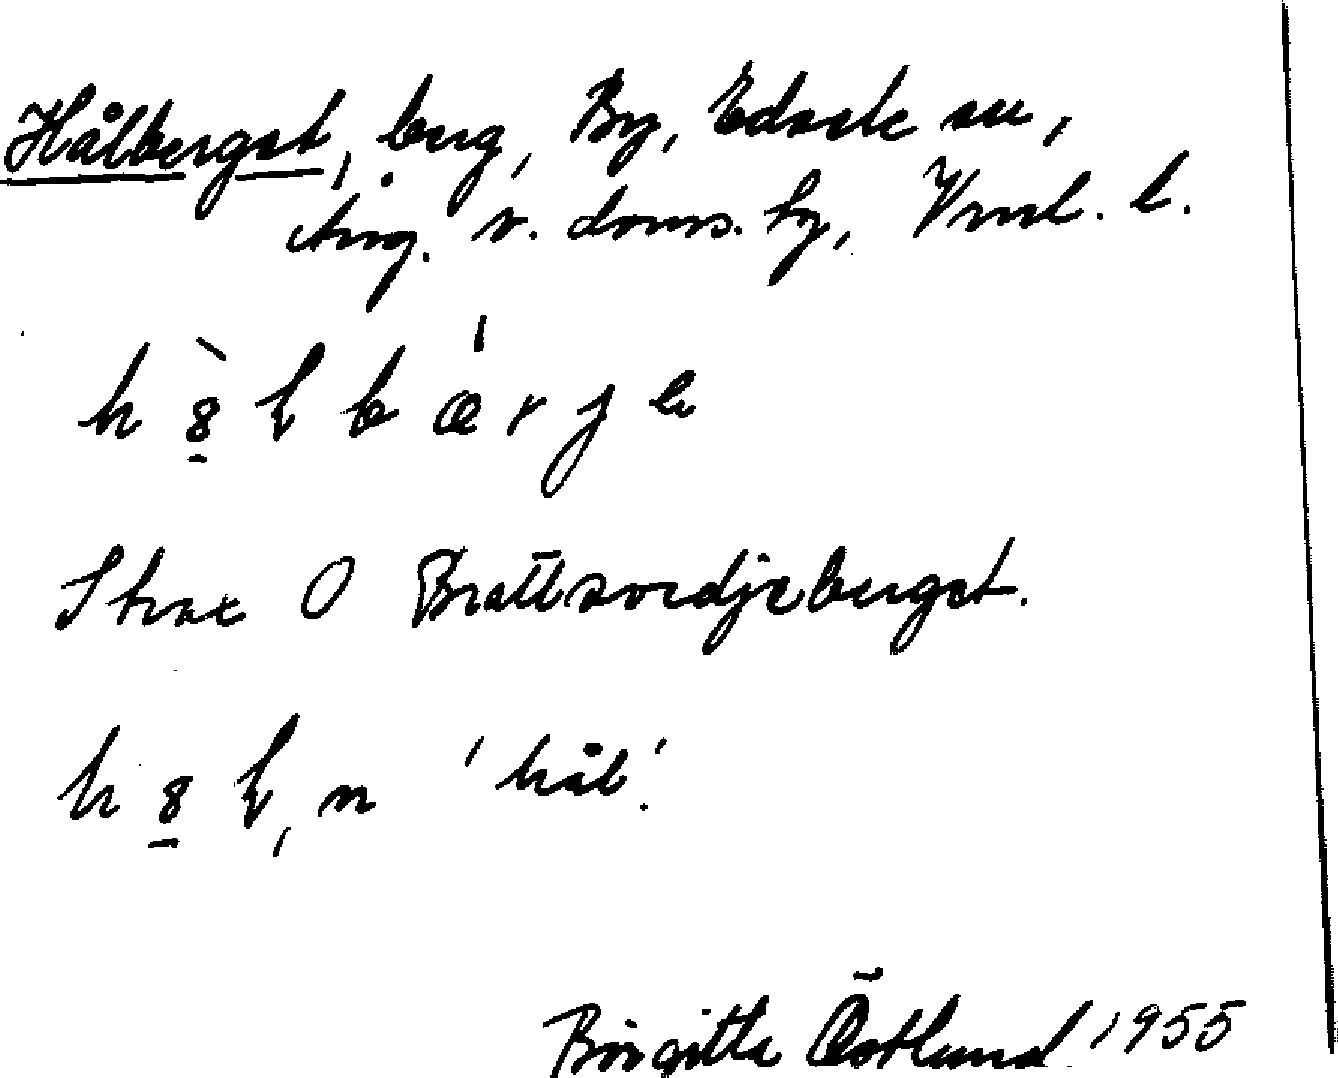 Hålberget, berg, By, Edsele sn,
Ång. v. doms. hg, Vnrl. l.
h 8̀ l b ǽ r j e
Strax O Brattsvedjeberget.
h 8 l, n 'hål'.
Birgitta Östlund 1955